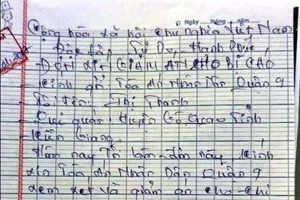 Ngày tháng năm
Cộng hòa xã hội chủ nghĩa Việt Nam
Độc Lập Tự Do Hạnh Phúc
ĐƠN XIN GIẢM ÁN CHO BỊ CÁO
Kính gửi Tòa Án Nhân Dân Quận 9
Tôi tên: Thị Thanh
Quê quán: Huyện Gò Quao Tỉnh
Kiên Giang.
Hôm nay Tôi làm đơn này kính
xin Tòa Án Nhân Dân Quận 9
xem xét và giảm án cho chị